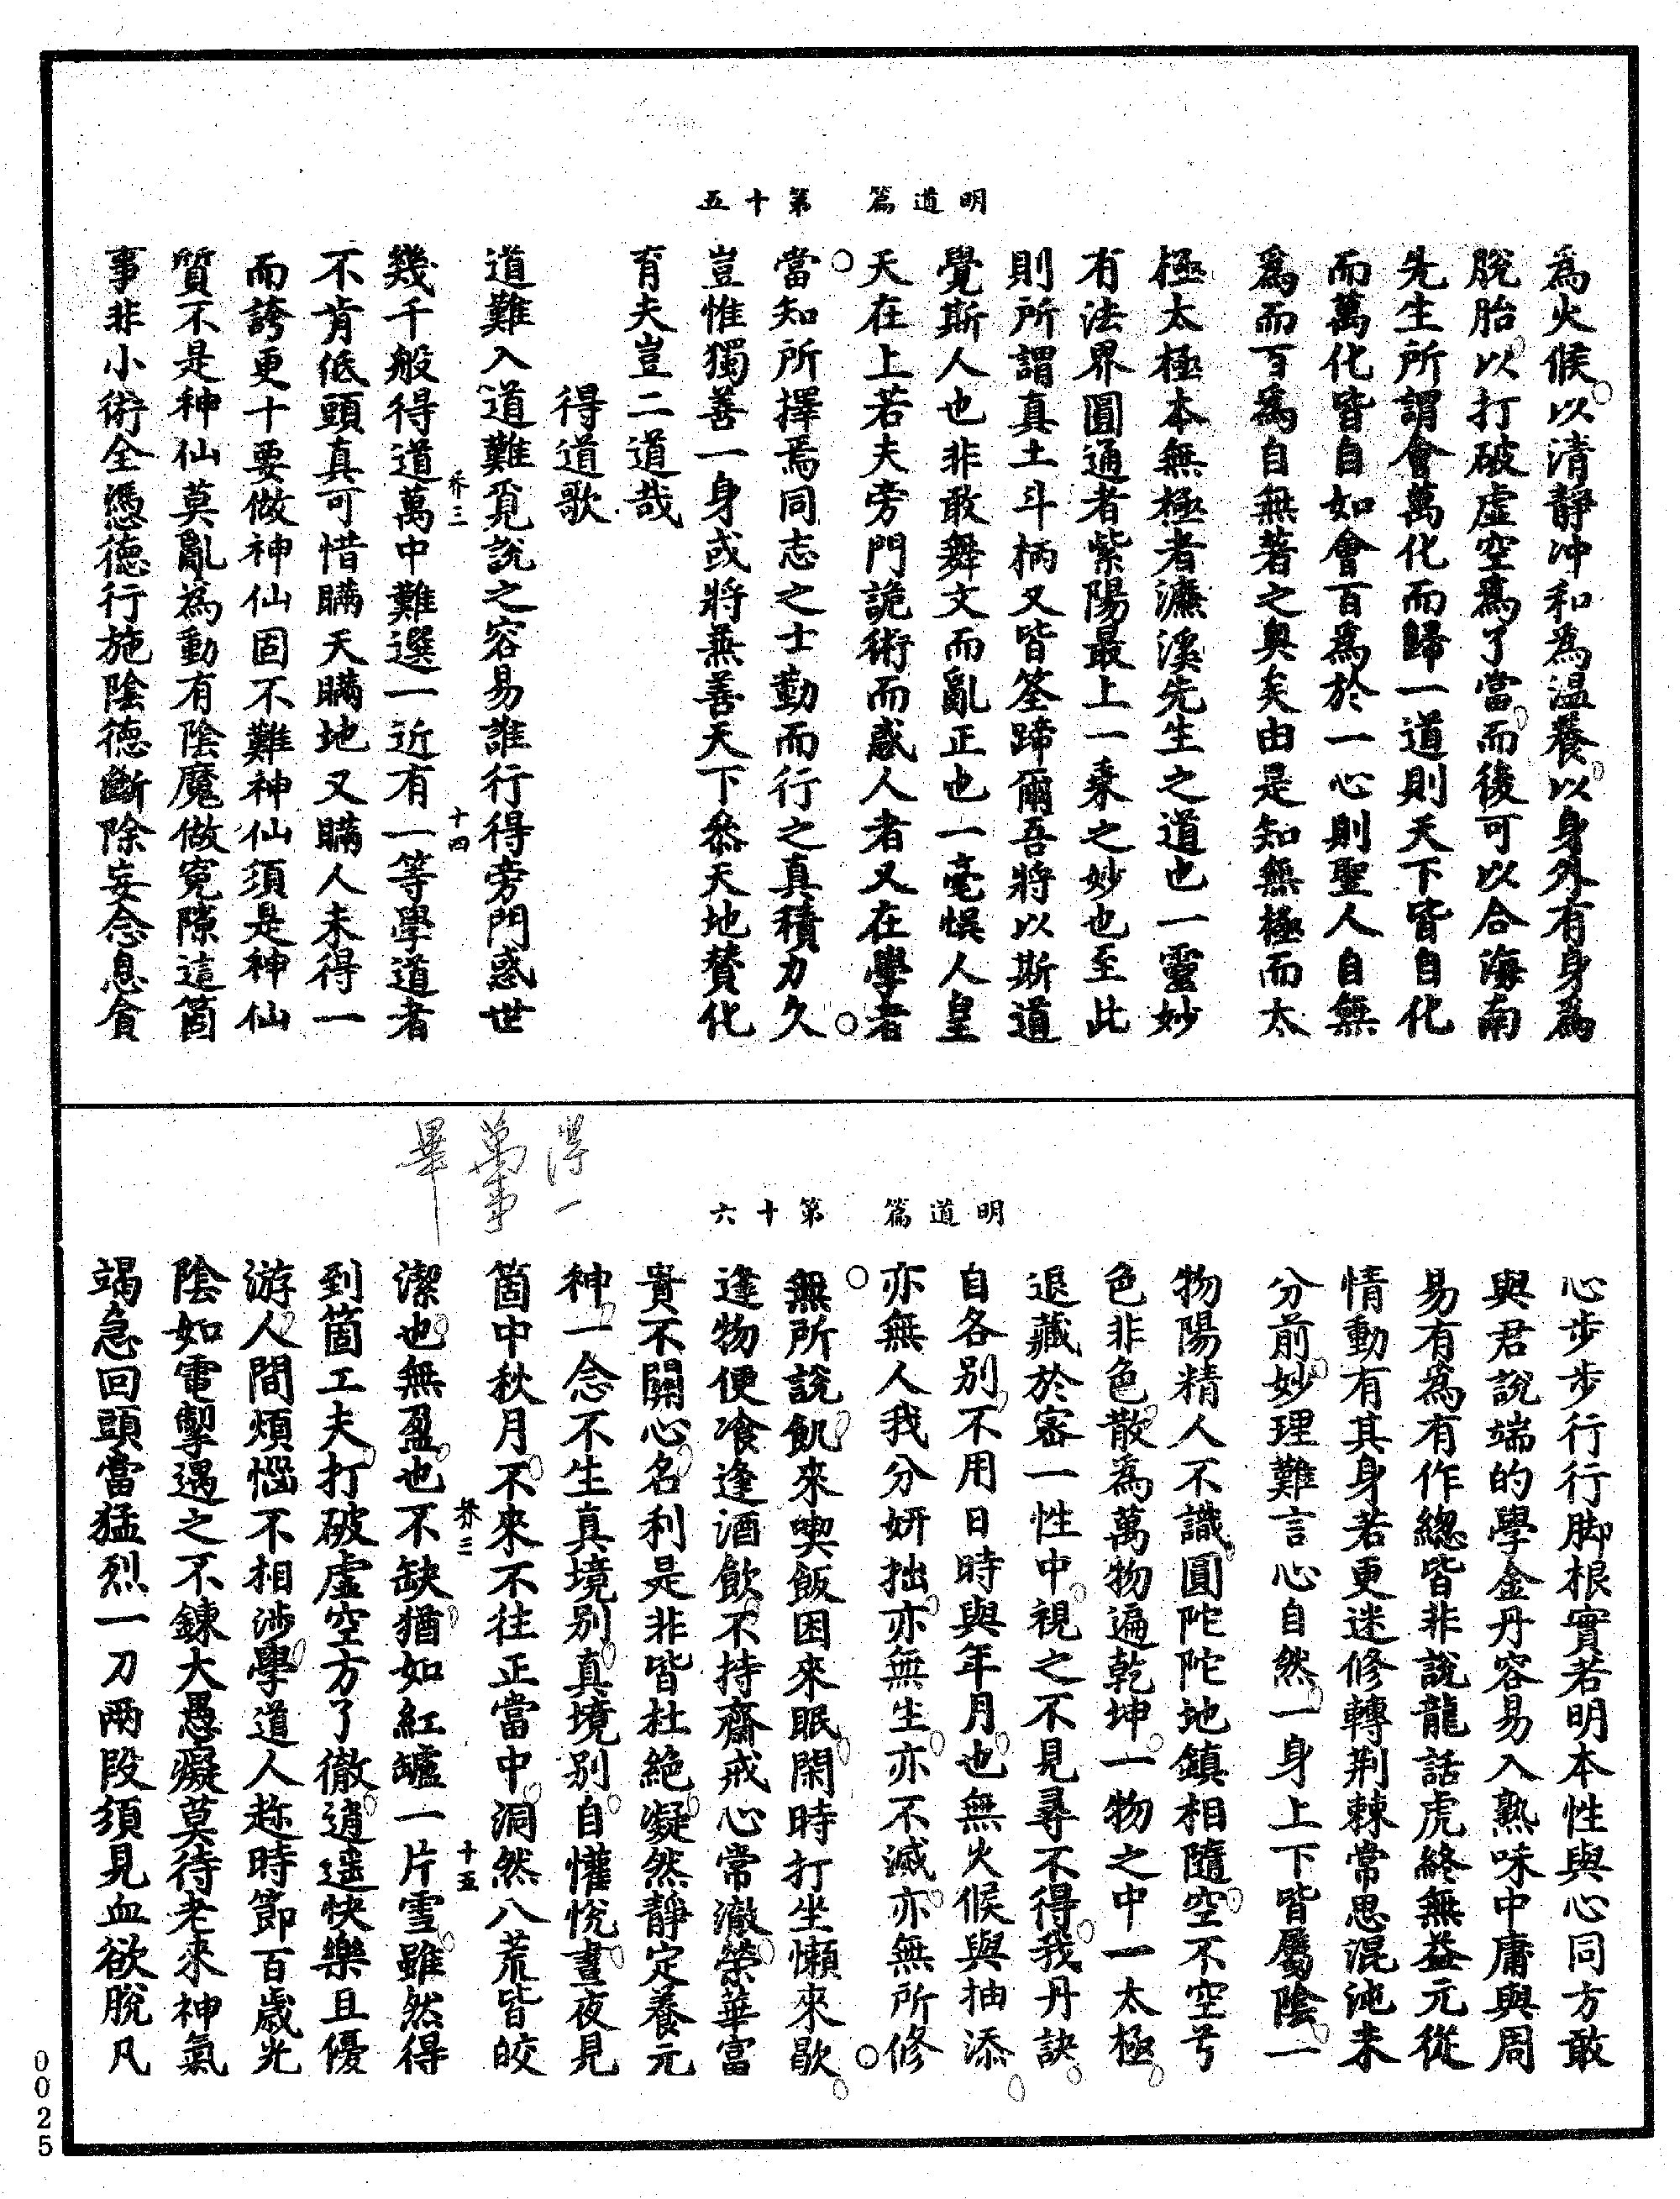 明道篇　第十五
為火候以清靜冲和為温養以身外有身為
脫胎以打破虛空為了當而後可以合海南
先生所謂會萬化而歸一道則天下皆自化
而萬化皆自如會百為於一心則聖人自無
為而百為自無著之奧矣由是知無極而太
極太極本無極者濂溪先生之道也一靈妙
有法界圓通者紫陽最上一乘之妙也至此
則所謂真土斗柄又皆筌蹄爾吾將以斯道
覺斯人也非敢舞文而亂正也一毫悞人皇
天在上若夫旁門詭術而惑人者又在學者
當知所擇焉同志之士勤而行之真積力久
豈惟獨善一身或將兼善天下叅天地賛化
育夫豈二道哉
得道歌
道難入道難覓說之容易誰行得旁門惑世
芥三　十四
幾千般得道萬中難選一近有一等學道者
不肯低頭真可惜瞞天瞞地又瞞人未得一
而誇更十要做神仙固不難神仙須是神仙
質不是神仙莫亂為動有陰魔做寃隙這箇
事非小術全憑德行施陰德斷除妄念息貪
得一
萬事
畢
明道篇　第十六
心步步行行脚根實若明本性與心同方敢
與君說端的學金丹容易入熟味中庸與周
易有為有作緫皆非說龍話虎終無益元從
情動有其身若更迷修轉荆棘常思混沌未
分前妙理難言心自然一身上下皆屬陰一
物陽精人不識圓陀陀地鎮相隨空不空兮
色非色散為萬物遍乾坤一物之中一太極
退藏於密一性中視之不見尋不得我丹訣
自各别不用日時與年月也無火候與抽添
亦無人我分妍拙亦無生亦不滅亦無所修
無所說飢來喫飯困來眠閑時打坐懶來歇
逢物便飡逢酒飲不持齋戒心常澈榮華富
貴不關心名利是非皆杜絶凝然靜定養元
神一念不生真境别真境别自懽悅晝夜見
箇中秋月不來不往正當中洞然八荒皆皎
芥三　十五
潔也無盈也不缺猶如紅罏一片雪雖然得
到箇工夫打破虛空方了徹逍遥快樂且優
游人間煩惱不相涉學道人趂時節百歲光
陰如電掣遇之不鍊大愚癡莫待老來神氣
竭急回頭當猛烈一刀兩段須見血欲脫凡
0025